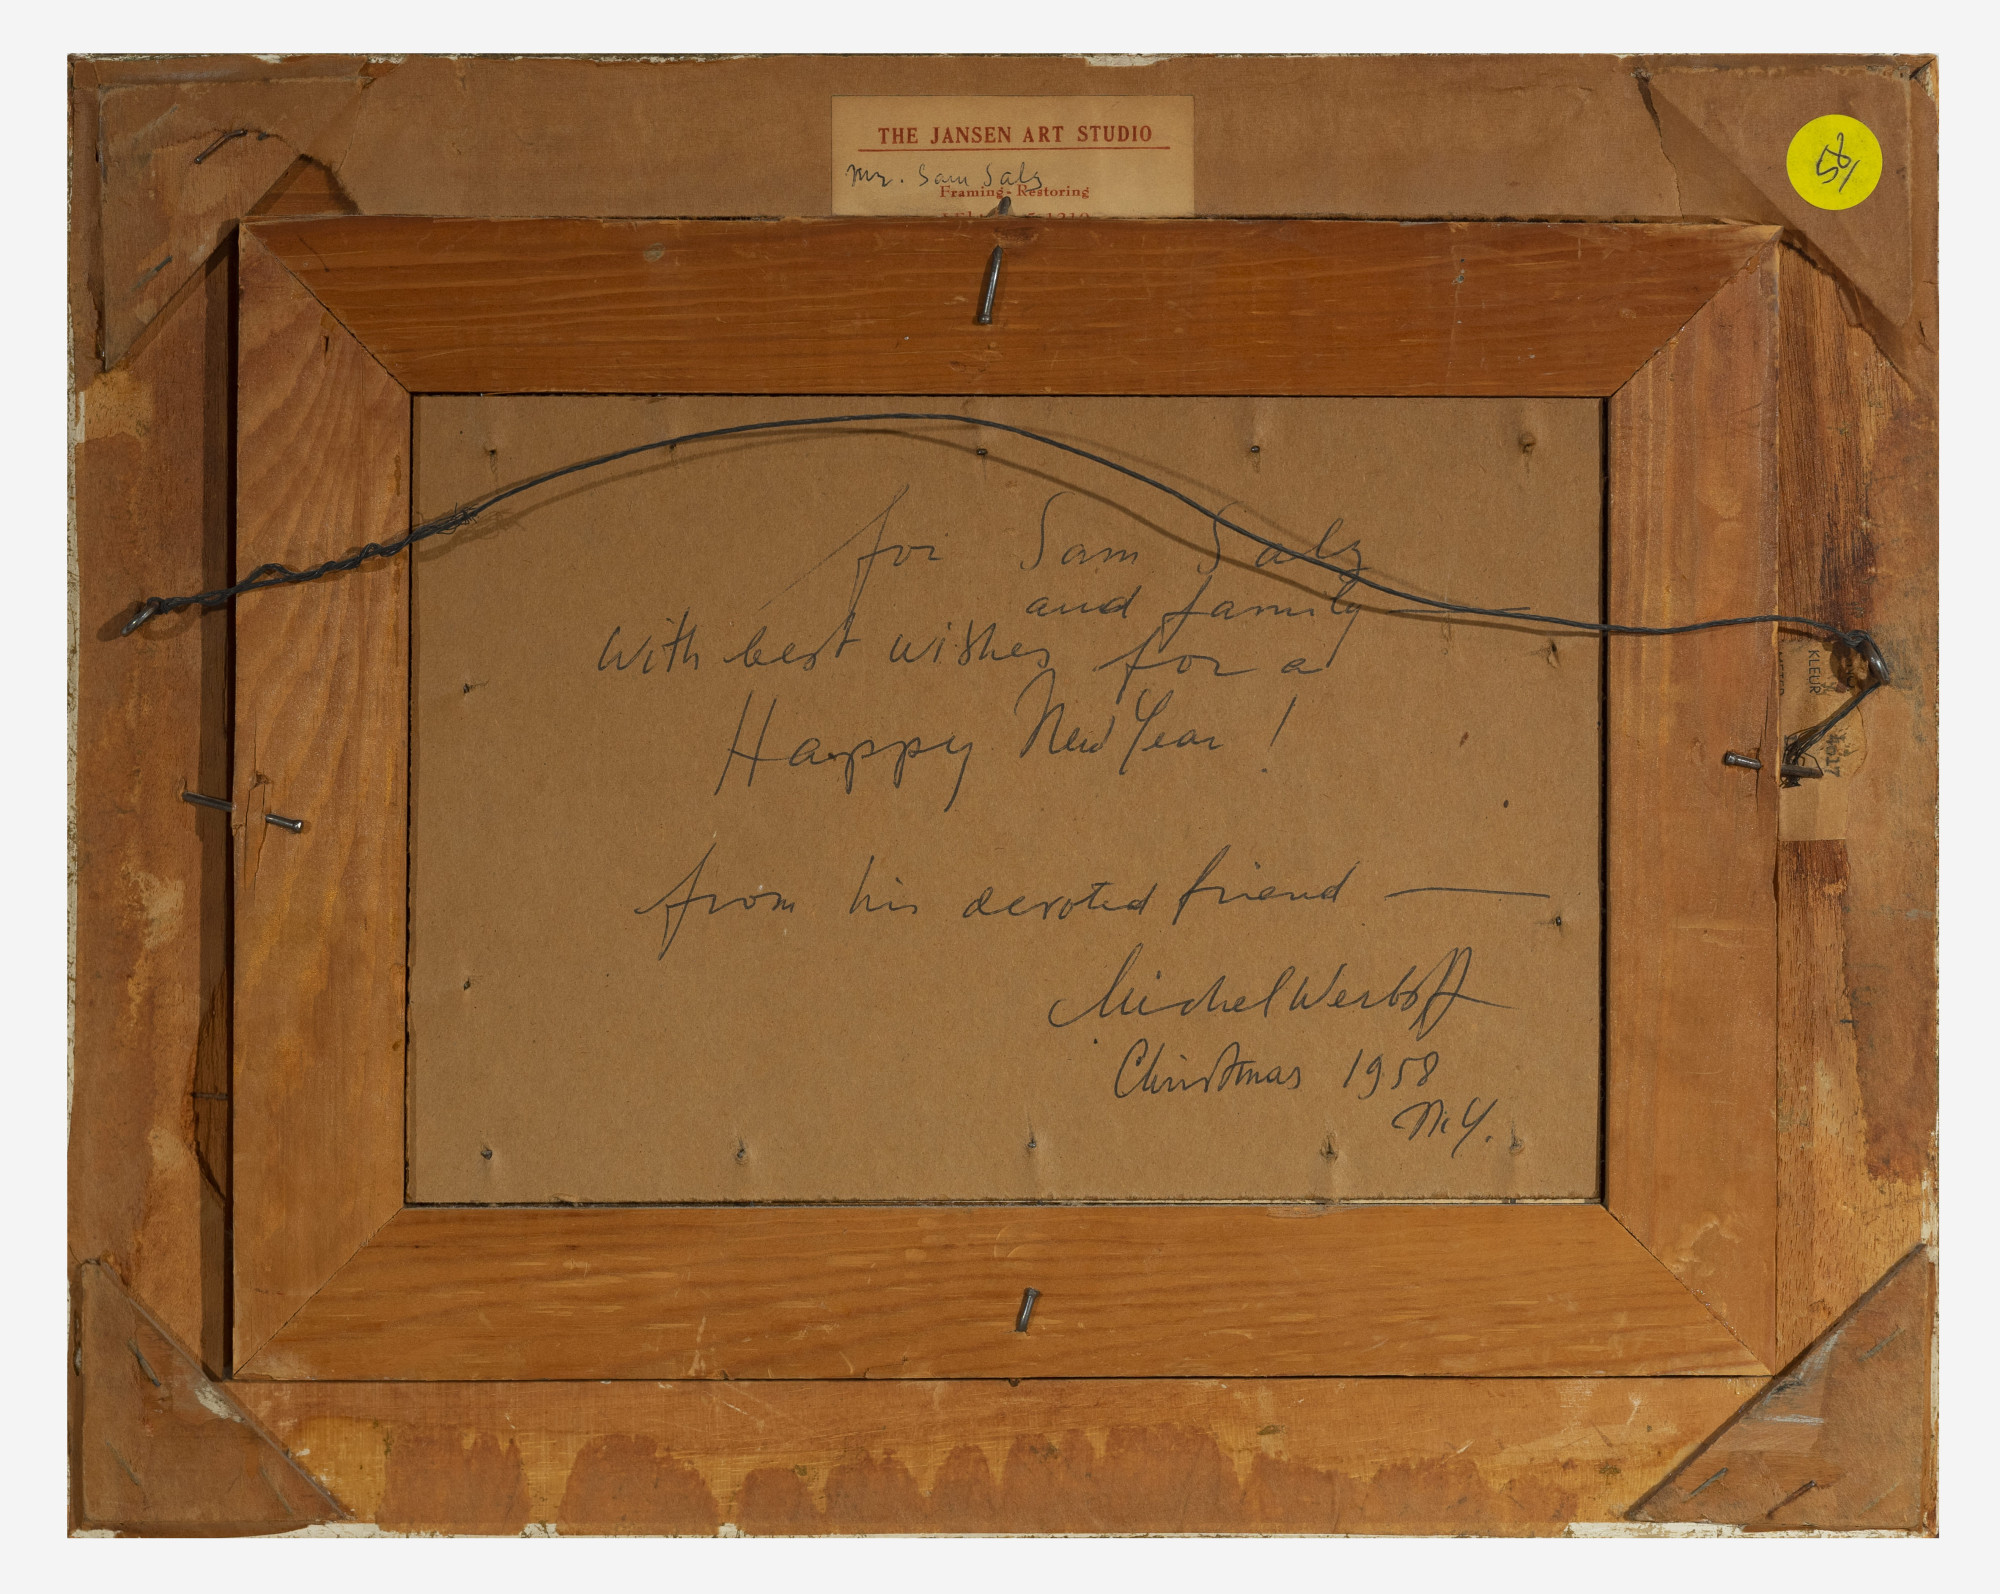 THE JANSEN ART STUDIO
Mr. Sam Salz
Framing - Restoring
58
for Sam Salz
and family —
With best wishes for a
Happy New Year !
from his devoted friend —
Michel Werboff
Christmas 1958
N.Y.
KLEUR